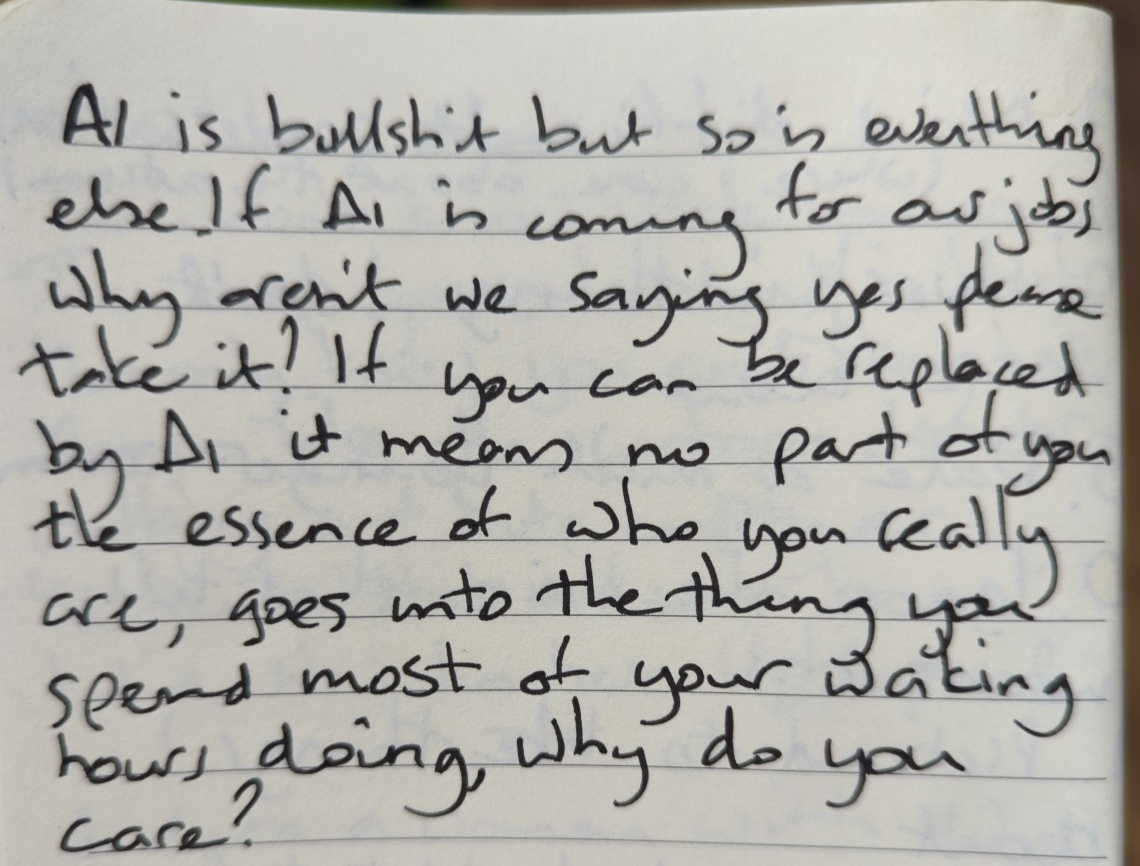 AI is bullshit but so is everthing
else. If AI is coming for our jobs
why aren't we saying yes please
take it? If you can be replaced
by AI it means no part of you
the essence of who you really
are, goes into the thing you
spend most of your waking
hours doing, why do you
care?